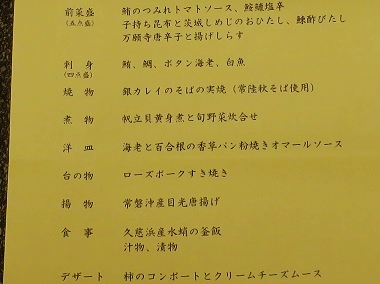 前菜盛 鮪のつみれトマトソース、鮟鱇塩辛
(五点盛) 子持ち昆布と茨城しめじのおひたし、鰊酢びたし
万願寺唐辛子と揚げしらす
刺身 鮪、鯛、ボタン海老、白魚
(四点盛)
焼物 銀カレイのそばの実焼(常陸秋そば使用)
煮物 帆立貝黄身煮と旬野菜炊合せ
洋皿 海老と百合根の香草パン粉焼きオマールソース
台の物 ローズポークすき焼き
揚物 常磐沖産目光唐揚げ
食事 久慈浜産水蛸の釜飯
汁物、漬物
デザート 柿のコンポートとクリームチーズムース